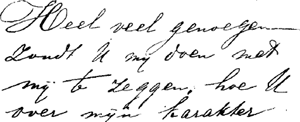 Heel veel genoegen
zoudt U mij doen met
mij te zeggen, hoe U
over mijn karakter